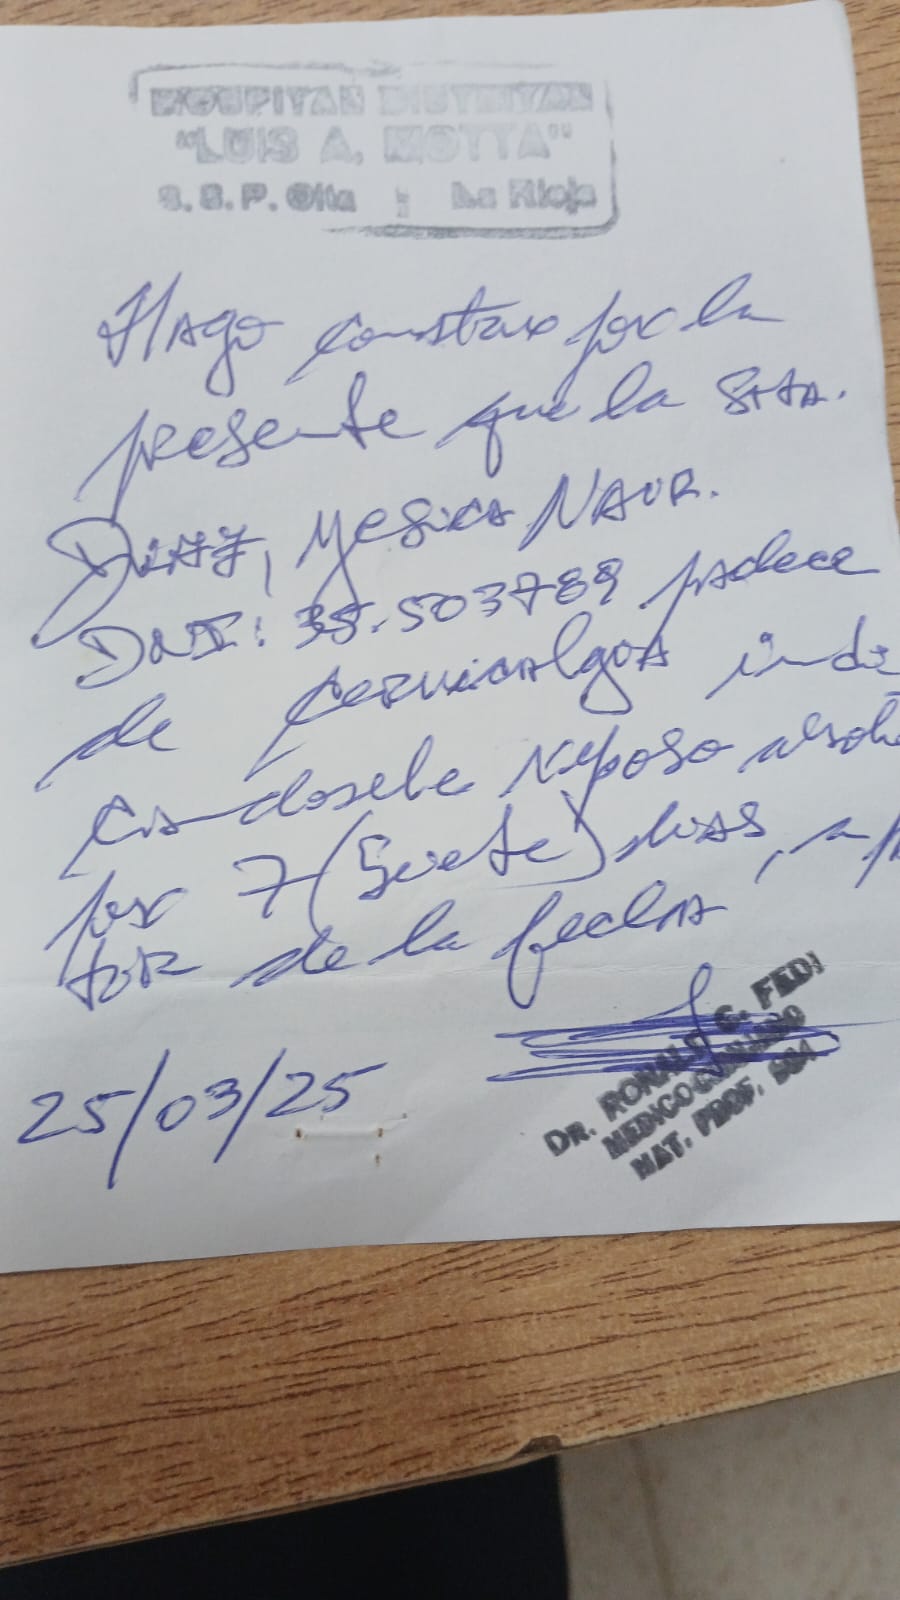 HOSPITAL DISTRITAL
"LUIS A. MOTTA"
S.S.P. Olta : La Rioja
Hago constar por la
presente que la Srta.
Diaz, Yesica Naur.
DNI: 35.503789 padece
de Cervicalgia indi
candosele reposo absol
por 7 (Siete) dias, a p
tir de la fecha
25/03/25
DR. RONALD C. FEDI
MEDICO CIRUJANO
MAT. PROF.